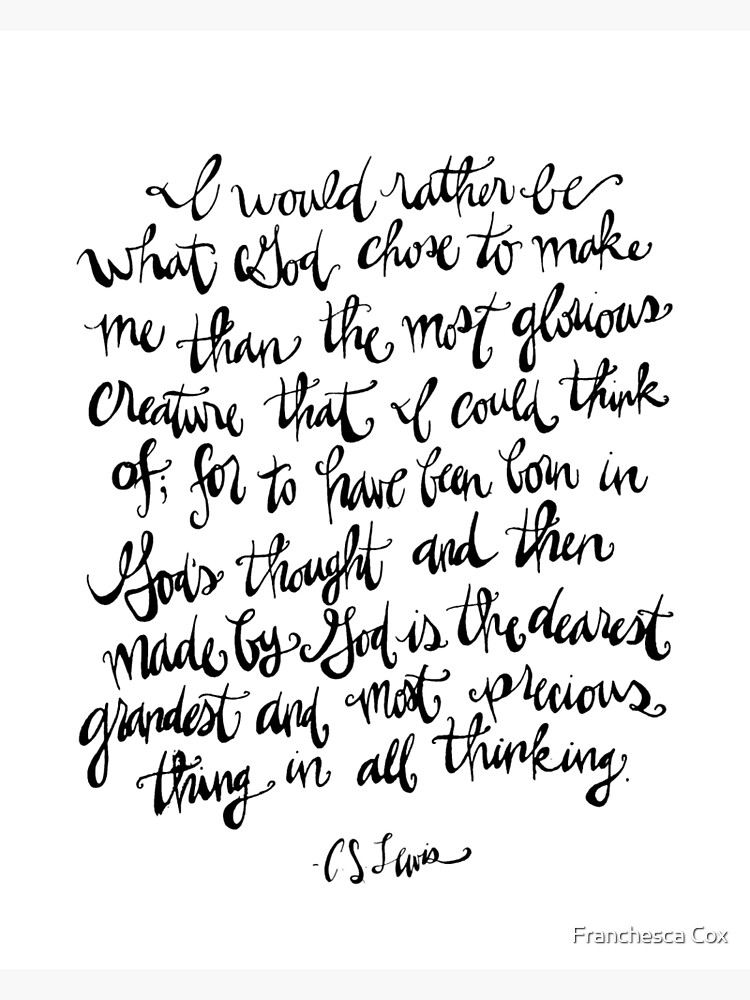 I would rather be
what God chose to make
me than the most glorious
creature that I could think
of; for to have been born in
God's thought and then
made by God is the dearest
grandest and most precious
thing in all thinking.
-C S Lewis
Franchesca Cox